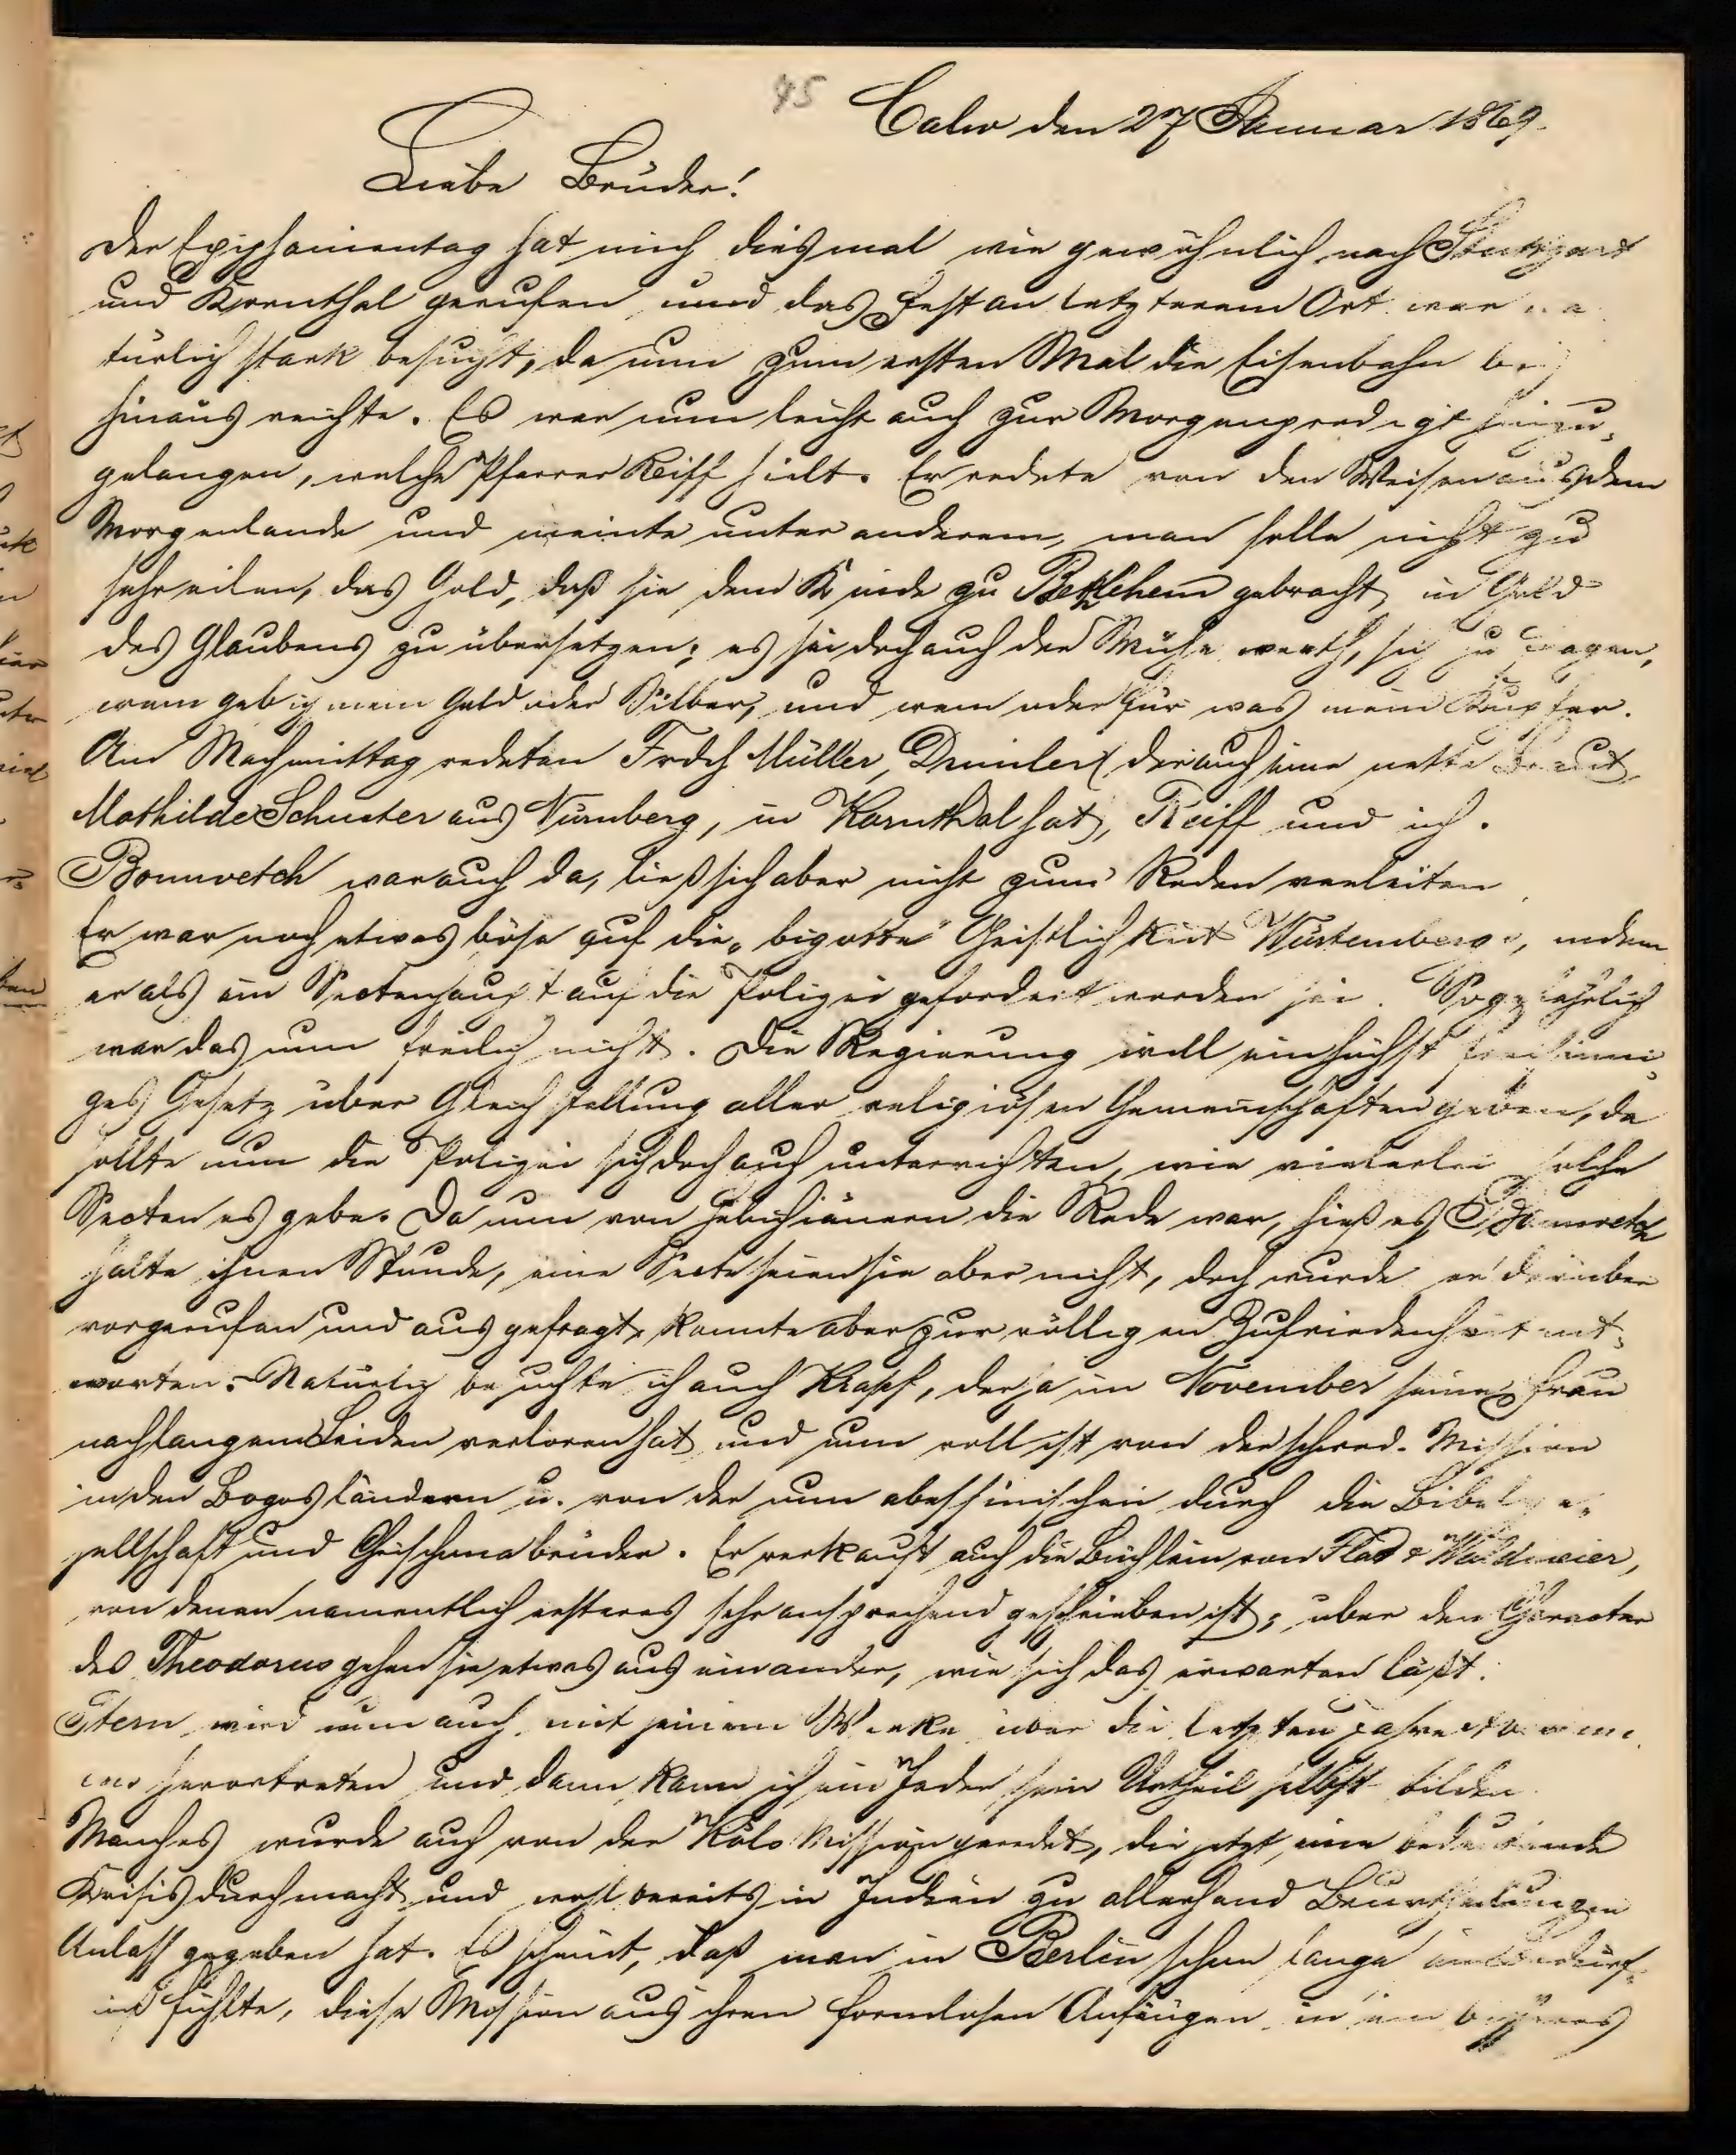 45
Calw den 27 Januar 1869.
Liebe Brüder!
Der Epiphanientag hat mich diesmal wie gewöhnlich nach Stuttgart
und Kornthal gerufen und das Fest an letzterem Ort war na
türlich stark besucht, da nun zum ersten Mal die Eisenbahn
hinaus reichte. Es war nun leicht auch zur Morgenpredigt hinzu
gelangen, welche Pfarrer Reiff hielt. Er redete von den Weisen aus dem
Morgenlande und meinte unter anderem, man solle nicht zu
sehr eilen, das Gold, daß sie dem Kinde zu Bethlehem gebracht, in Gold
des Glaubens zu übersetzen; es sei doch auch der Mühe werth, sich zu fragen,
wem geb ich mein Gold oder Silber, und wem oder für was mein Kupfer.
Am Nachmittag redeten Frdch Müller, Deimler (der auch eine nette Braut,
Mathilde Schuster aus Nürnberg, in Kornthal hat), Reiff und ich.
Bonwetsch war auch da, ließ sich aber nicht zum Reden verleiten
Er war noch etwas böse auf die „bigotte" Geistlichkeit Würtembergs, indem
er als ein Sectenhaupt auf die Polizei gefordert worden sei. So gefährlich
war das nun freilich nicht. Die Regierung will ein höchst freisinni
ges Gesetz über Gleichstellung aller religiösen Gemeinschaften geben, da
sollte nun die Polizei sich doch auch unterrichten, wie vielerlei solche
Secten es gebe. Da nun von Hebichianern die Rede war, hieß es, Bonwetsch
halte ihnen Stunde, eine Secte seien sie aber nicht, doch wurde er darüber
vorgerufen und ausgefragt, konnte aber zur völligen Zufriedenheit ant-
worten. Natürlich besuchte ich auch Krapf, der ja im November seine Frau
nach langem Leiden verloren hat und nun voll ist von der schwed. Mission
in den Bogosländern u. von der nun abessinischen durch die Bibelge-
sellschaft und Chrischonabrüder. Er verkauft auch die Büchlein von Flad & Waldmeier,
von denen namentlich ersteres sehr ansprechend geschrieben ist; über den Character
des Theodorus gehen sie etwas aus einander, wie sich das erwarten läßt.
Stern wird nun auch mit seinem Werke über die letzten Jahre
hervortreten und dann kann sich ein Jeder sein Urtheil selbst bilden.
Manches wurde auch von der Kols Mission geredet, die jetzt eine bedeutende
Krisis durchmacht und wohl bereits in Indien zu allerhand Beurtheilungen
Anlaß gegeben hat. Es scheint, daß man in Berlin schon lange ein Bedürf-
niß fühlte, diese Mission aus ihren formlosen Anfängen in ein